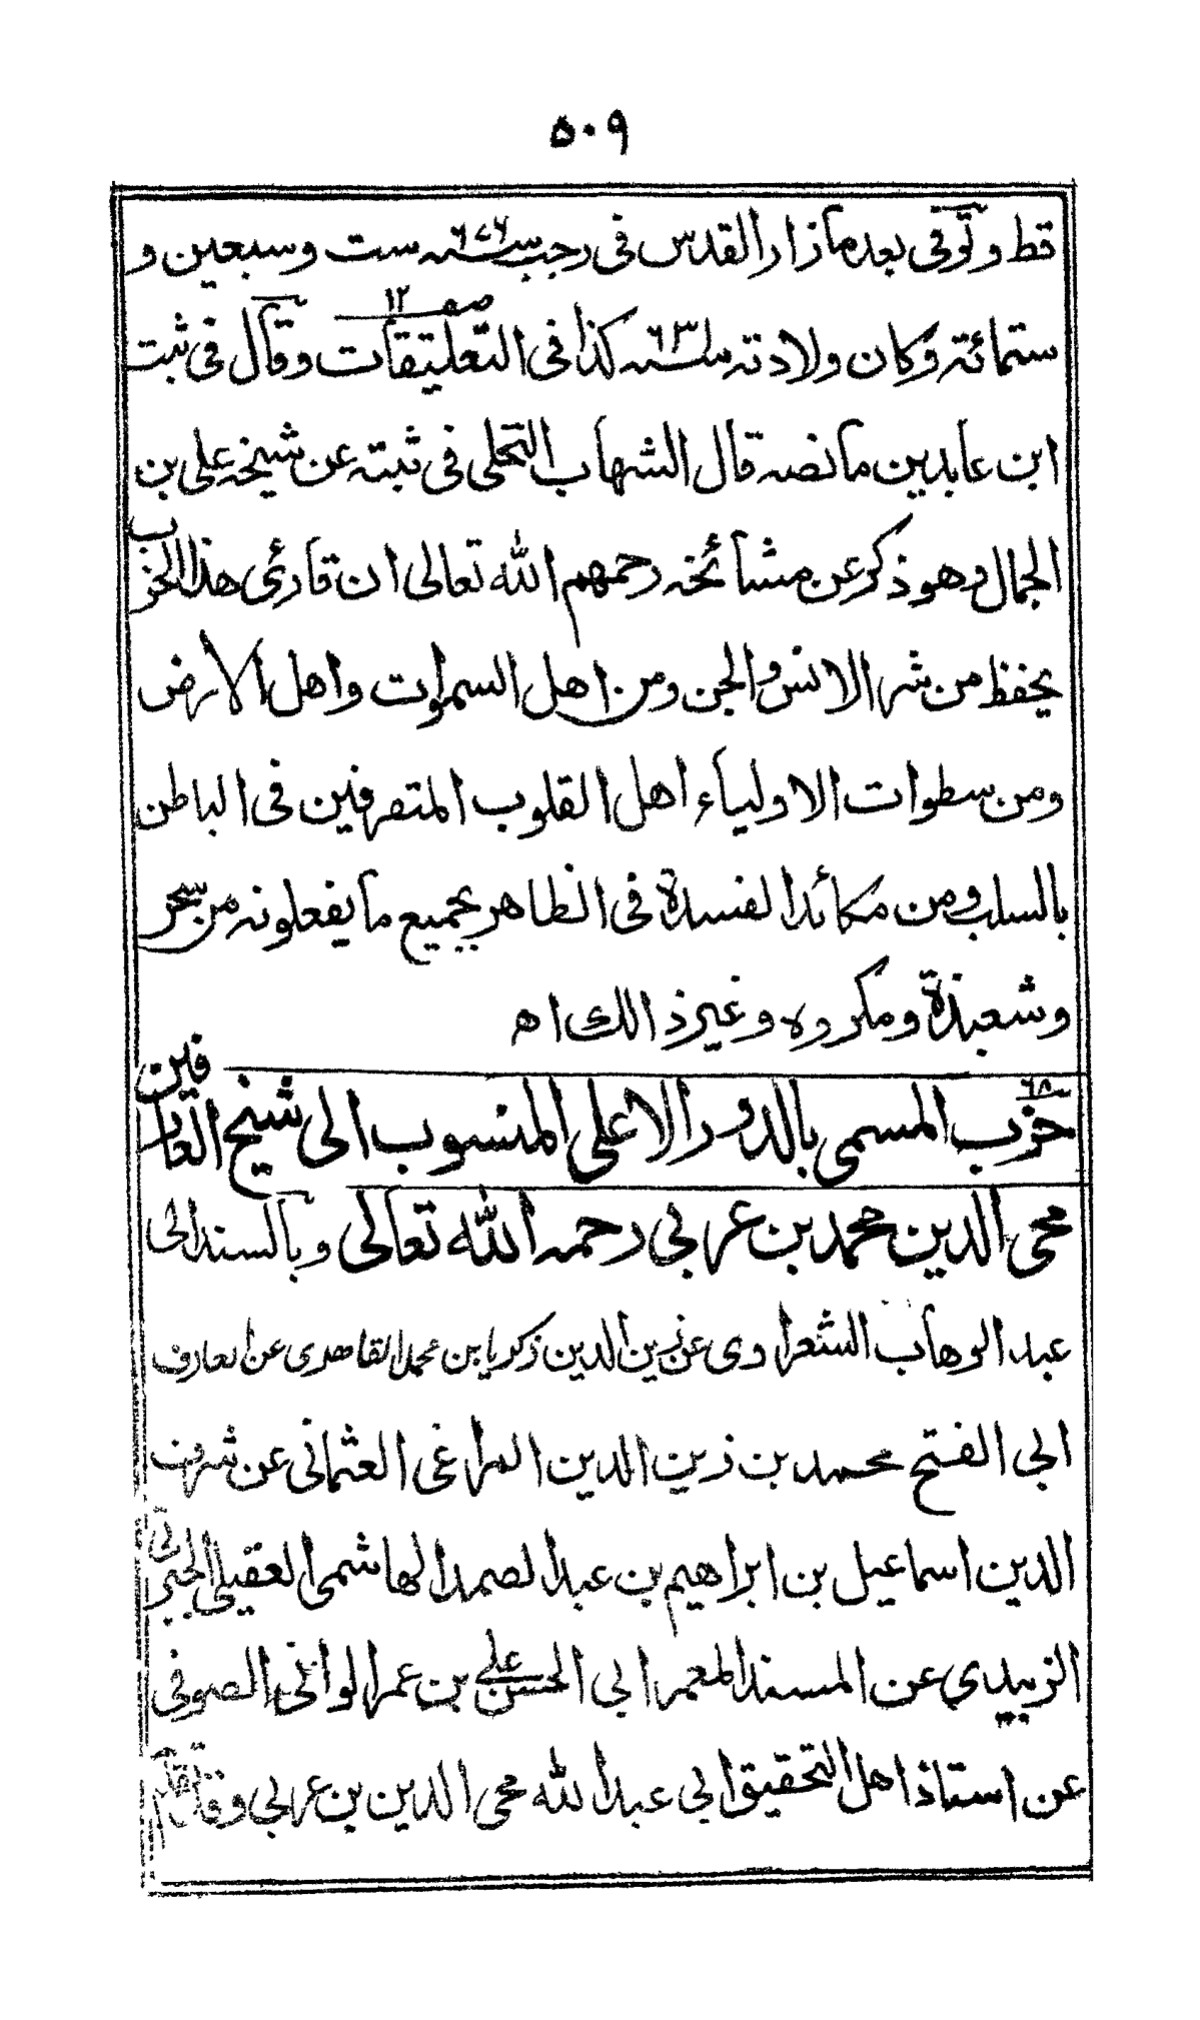 ٥٠٩
قط وتوفى بعد ما زار القدس فى رجب سنه ٦٧٦ ست وسبعين و
ستمائة وكان ولادته سنه ٦٣١ كذا فى التعليقات صه ١٢ وقال فى ثبت
ابن عابدين ما نصه قال الشهاب النخلى فى ثبته عن شيخه على بن
الجمال وهو ذكر عن مشائخه رحمهم الله تعالى ان قارئ هذا الحزب
يحفظ من شر الانس والجن ومن اهل السموات واهل الارض
ومن سطوات الاولياء اهل القلوب المتصرفين فى الباطن
بالسلب ومن مكائد الفسدة فى الظاهر بجميع ما يفعلونه من سحر
وشعبذة ومكروه وغيرذالك اه
٦٨ حزب المسمى بالدور الاعلى المنسوب الى شيخ العارفين
محى الدين محمد بن عربي رحمه الله تعالى وبالسند الى
عبد الوهاب الشعراوى عن زين الدين زكريا بن محمد القاهدى عن العارف
ابي الفتح محمد بن زين الدين المراغى العثمانى عن شرف
الدين اسماعيل بن ابراهيم بن عبد الصمد الهاشمى العقيلى الجبرتى
الزبيدي عن المسند المعمر ابي الحسن على بن عمر الوانى الصوفى
عن استاذ اهل التحقيق ابي عبد الله محى الدين بن عربي